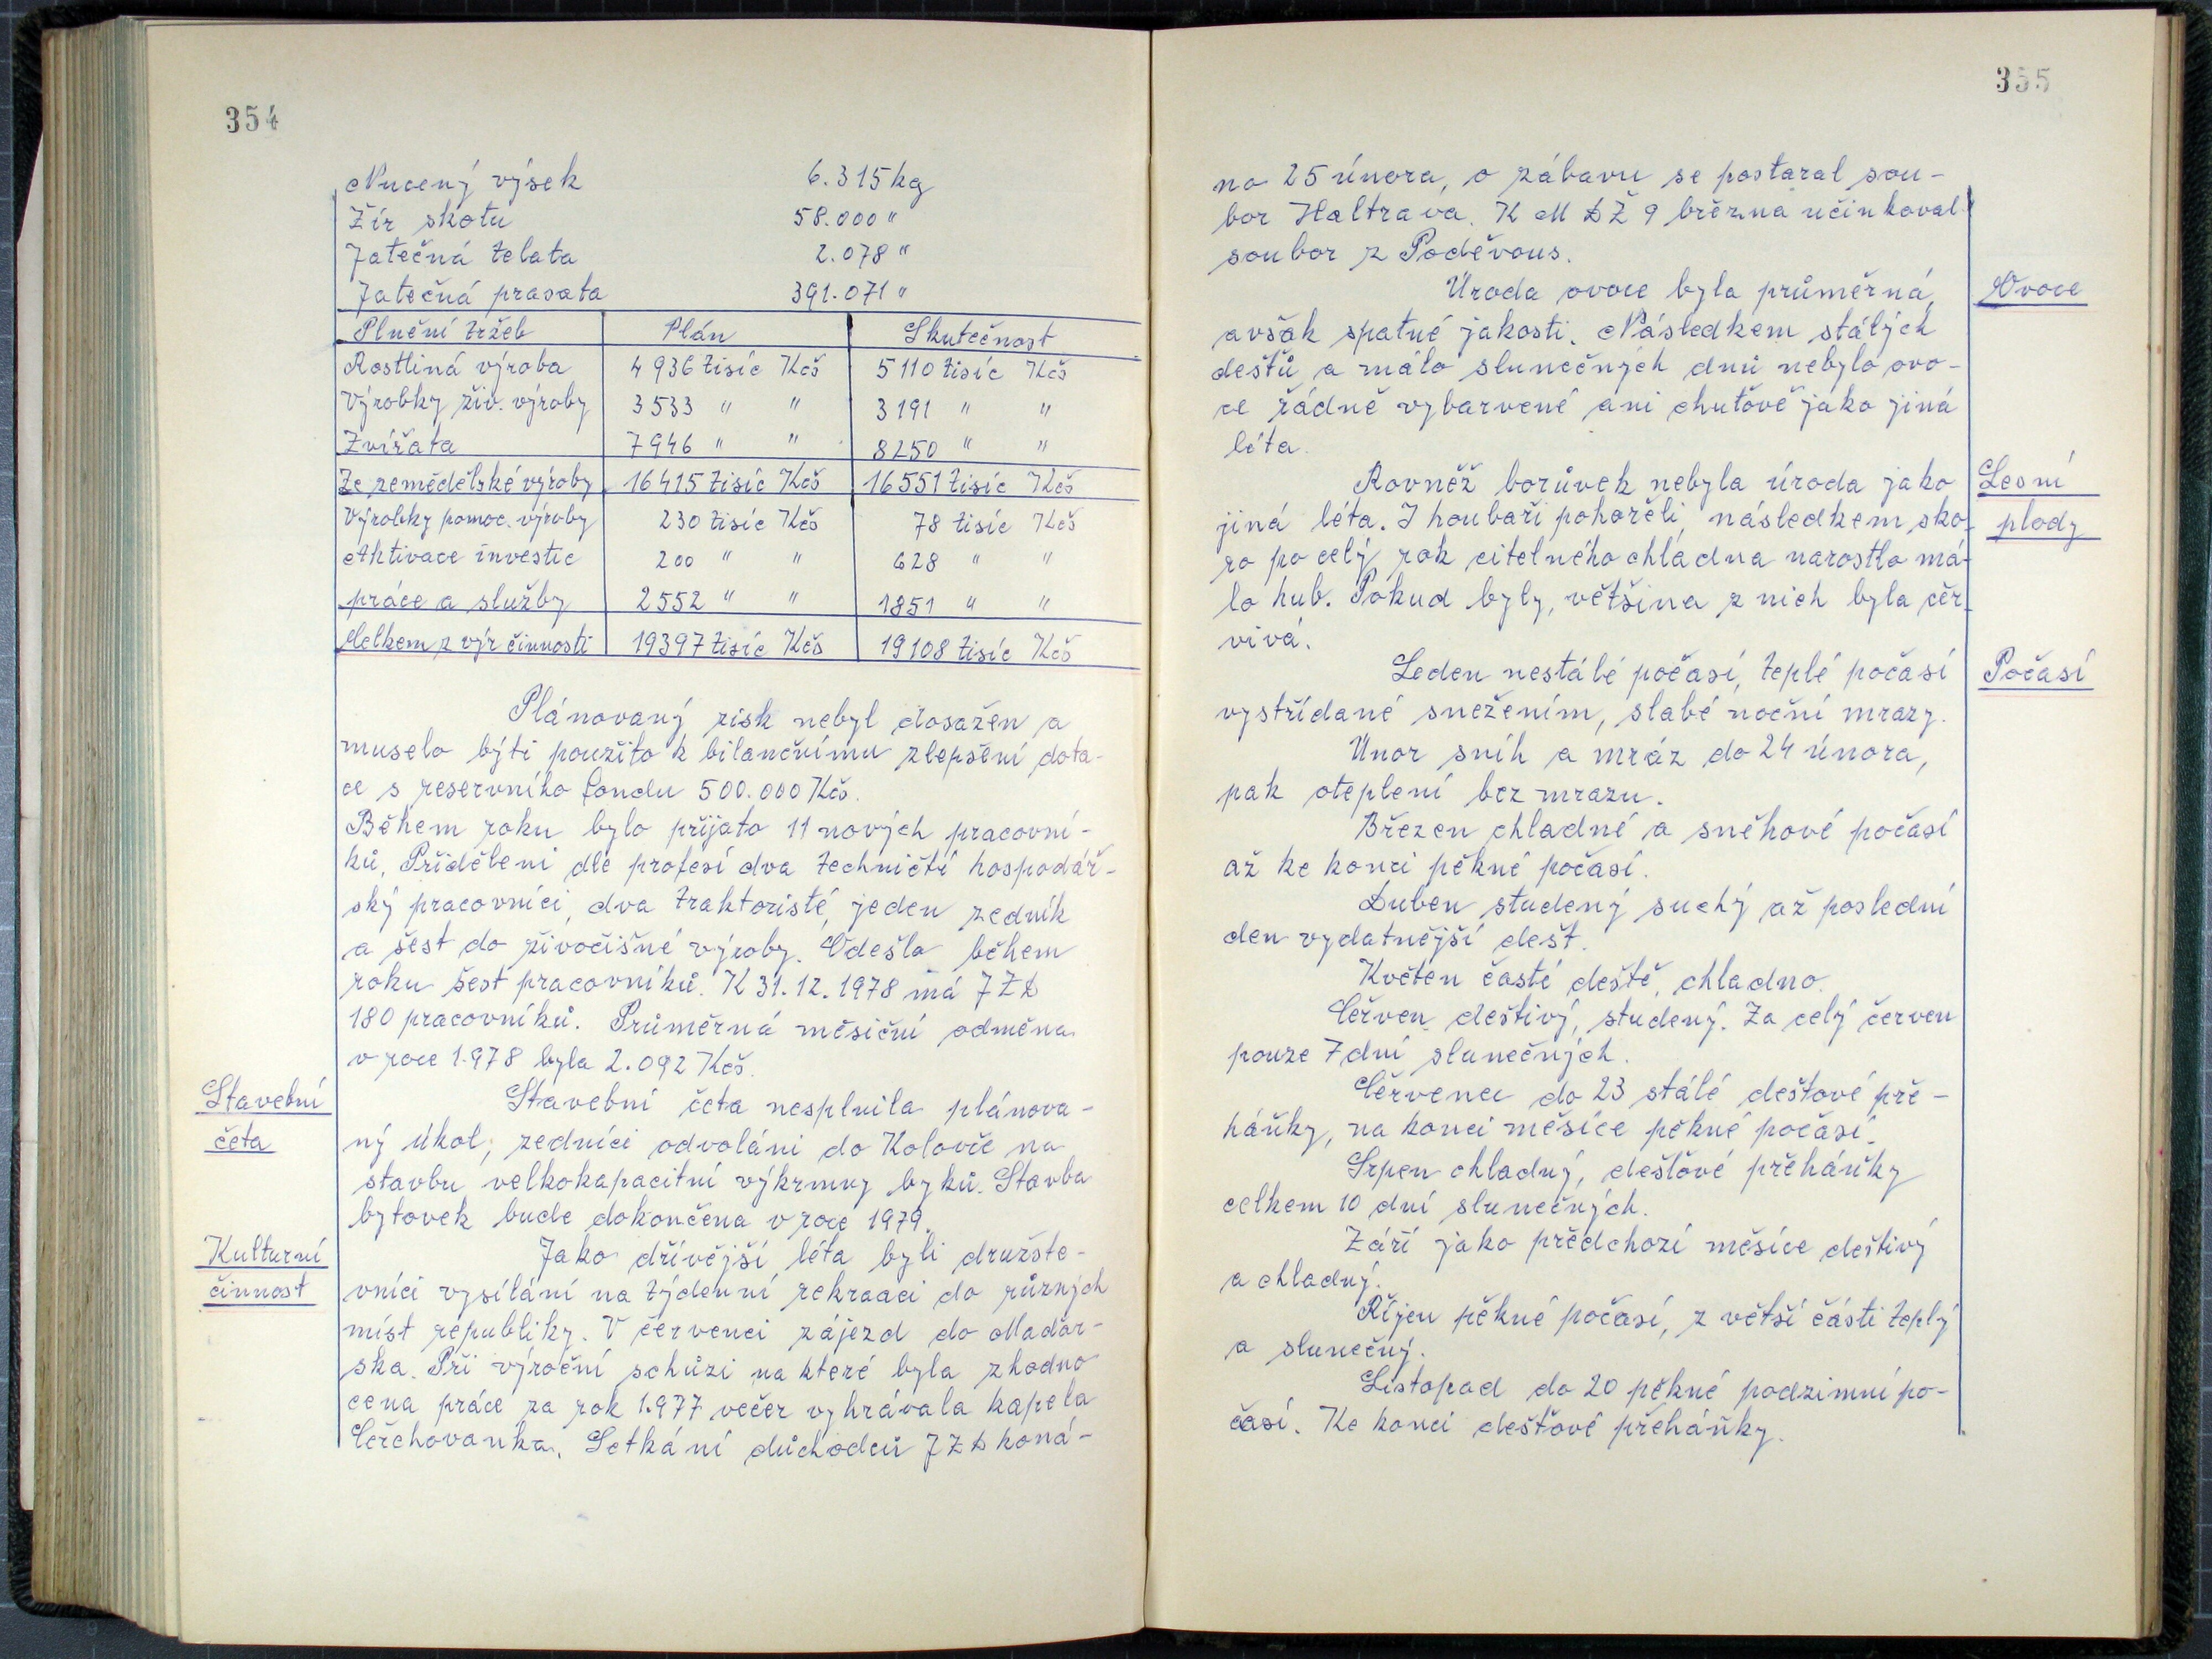 354
Nucený výsek 6.315 kg
Žír skotu 58.000 "
Jatečná telata 2.078 "
Jatečná prasata 391.071 "
Plnění tržeb Plán Skutečnost
Rostliná výroba 4 936 tisíc Kčs 5 110 tisíc Kčs
Výrobky živ. výroby 3 533 " " 3 191 " "
Zvířata 7 946 " " 8 250 " "
Ze zemědělské výroby 16 415 tisíc Kčs 16 551 tisíc Kčs
Výrobky pomoc. výroby 230 tisíc Kčs 78 tisíc Kčs
Aktivace investic 200 " " 628 " "
práce a služby 2 552 " " 1851 " "
Celkem z výr činnosti 19 397 tisíc Kčs 19 108 tisíc Kčs
Plánovaný zisk nebyl dosažen a
muselo býti použito k bilančnímu zlepšení dota-
ce s reservního fondu 500.000 Kčs.
Během roku bylo přijato 11 nových pracovní-
ků, Přiděleni dle profesí dva techničtí hospodář-
ský pracovníci, dva traktoristé, jeden zedník
a šest do živočišné výroby. Odešlo během
roku šest pracovníků. K 31.12.1978 má JZD
180 pracovníků. Průměrná měsíční odměna
v roce 1.978 byla 2.092 Kčs.
Stavební
četa
Stavební četa nesplnila plánova-
ný úkol, zedníci odvoláni do Kolovče na
stavbu velkokapacitní výkrmny byků. Stavba
bytovek bude dokončena v roce 1979.
Kulturní
činnost
Jako dřívější léta byli družste-
vníci vysílání na týdenní rekraaci do různých
míst republiky. V červenci zájezd do Maďar-
ska. Při výroční schůzi na které byla zhodno
cena práce za rok 1.977 večer vyhrávala kapela
Čerchovanka. Setkání důchodců JZD koná-
355
no 25 února, o zábavu se postaral sou-
bor Haltrava. K MDŽ 9 března učinkoval
soubor z Poděvous.
Ovoce
Úroda ovoce byla průměrná,
avšak spatné jakosti. Následkem stálých
dešťů a málo slunečných dnů nebylo ovo-
ce řádně vybarvené ani chuťově jako jiná
léta.
Lesní
plody
Rovněž borůvek nebyla úroda jako
jiná léta. I houbaři pohořeli, následkem sko-
ro po celý rok citelného chladna narostlo má-
lo hub. Pokud byly, většina z nich byla čer-
vivá.
Počasí
Leden nestálé počasí, teplé počasí
vystřídané sněžením, slabé noční mrazy.
Únor sníh a mráz do 24 února,
pak oteplení bez mrazu.
Březen chladné a sněhové počasí
až ke konci pěkné počasí.
Duben studený suchý až poslední
den vydatnější dešť.
Květen časté deště, chladno.
Červen deštivý, studený. Za celý červen
pouze 7 dní slunečných.
Červenec do 23 stálé dešťové pře-
háňky, na konci měsíce pěkné počasí.
Srpen chladný, dešťové přeháňky
celkem 10 dní slunečných.
Září jako předchozí měsíce deštivý
a chladný.
Říjen pěkné počasí, z větší části teplý
a slunečný.
Listopad do 20 pěkné podzimní po-
časí. Ke konci dešťové přeháňky.